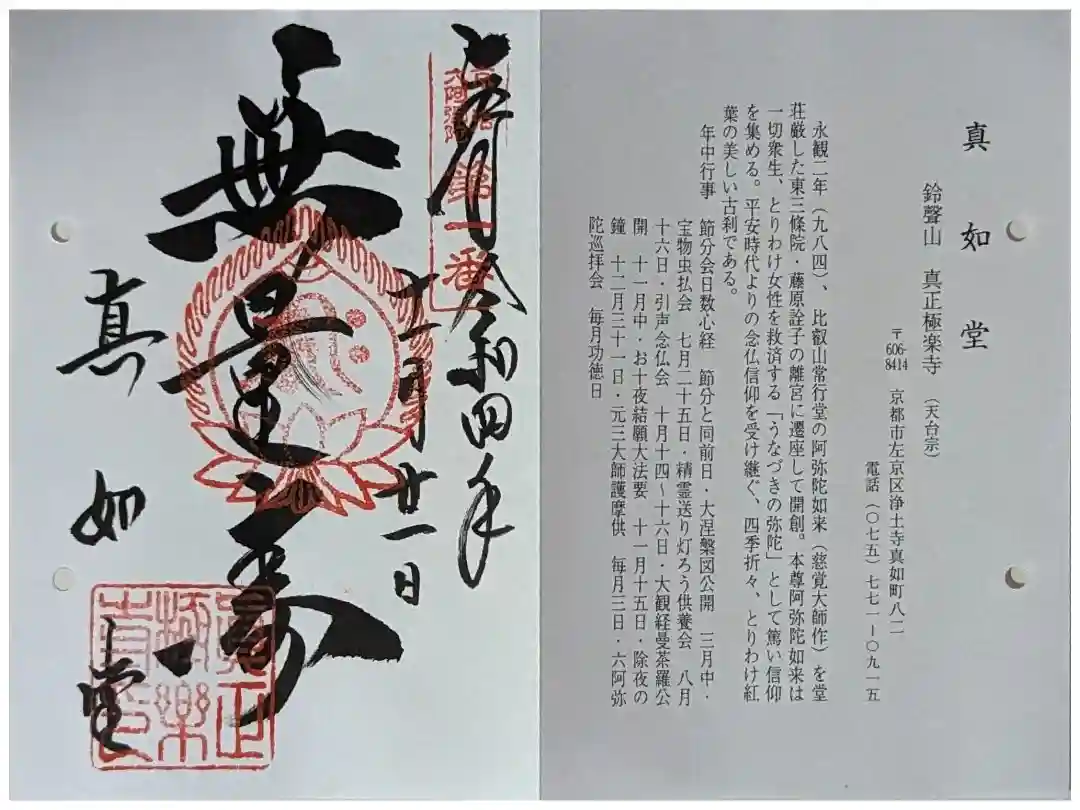 真如堂
鈴聲山 真正極楽寺(天台宗)
〒606-8414 京都市左京区浄土寺真如町八二
電話(〇七五)七七一ー〇九一五
永観二年(九八四)、比叡山常行堂の阿弥陀如来(慈覚大師作)を堂
荘厳した東三條院・藤原詮子の離宮に遷座して開創。本尊阿弥陀如来は
一切衆生、とりわけ女性を救済する「うなづきの弥陀」として篤い信仰
を集める。平安時代よりの念仏信仰を受け継ぐ、四季折々、とりわけ紅
葉の美しい古刹である。
年中行事 節分会日数心経 節分と同前日・大涅槃図公開 三月中・
宝物虫払会 七月二十五日・精霊送り灯ろう供養会 八月
十六日・引声念仏会 十月十四〜十六日・大観経曼荼羅公
開 十一月中・お十夜結願大法要 十一月十五日・除夜の
鐘 十二月三十一日・元三大師護摩供 毎月三日・六阿弥
陀巡拝会 毎月功徳日
令和四年
六阿弥陀
第一番
月廿一日
無量寿
真如堂
眞正
極樂
寺印